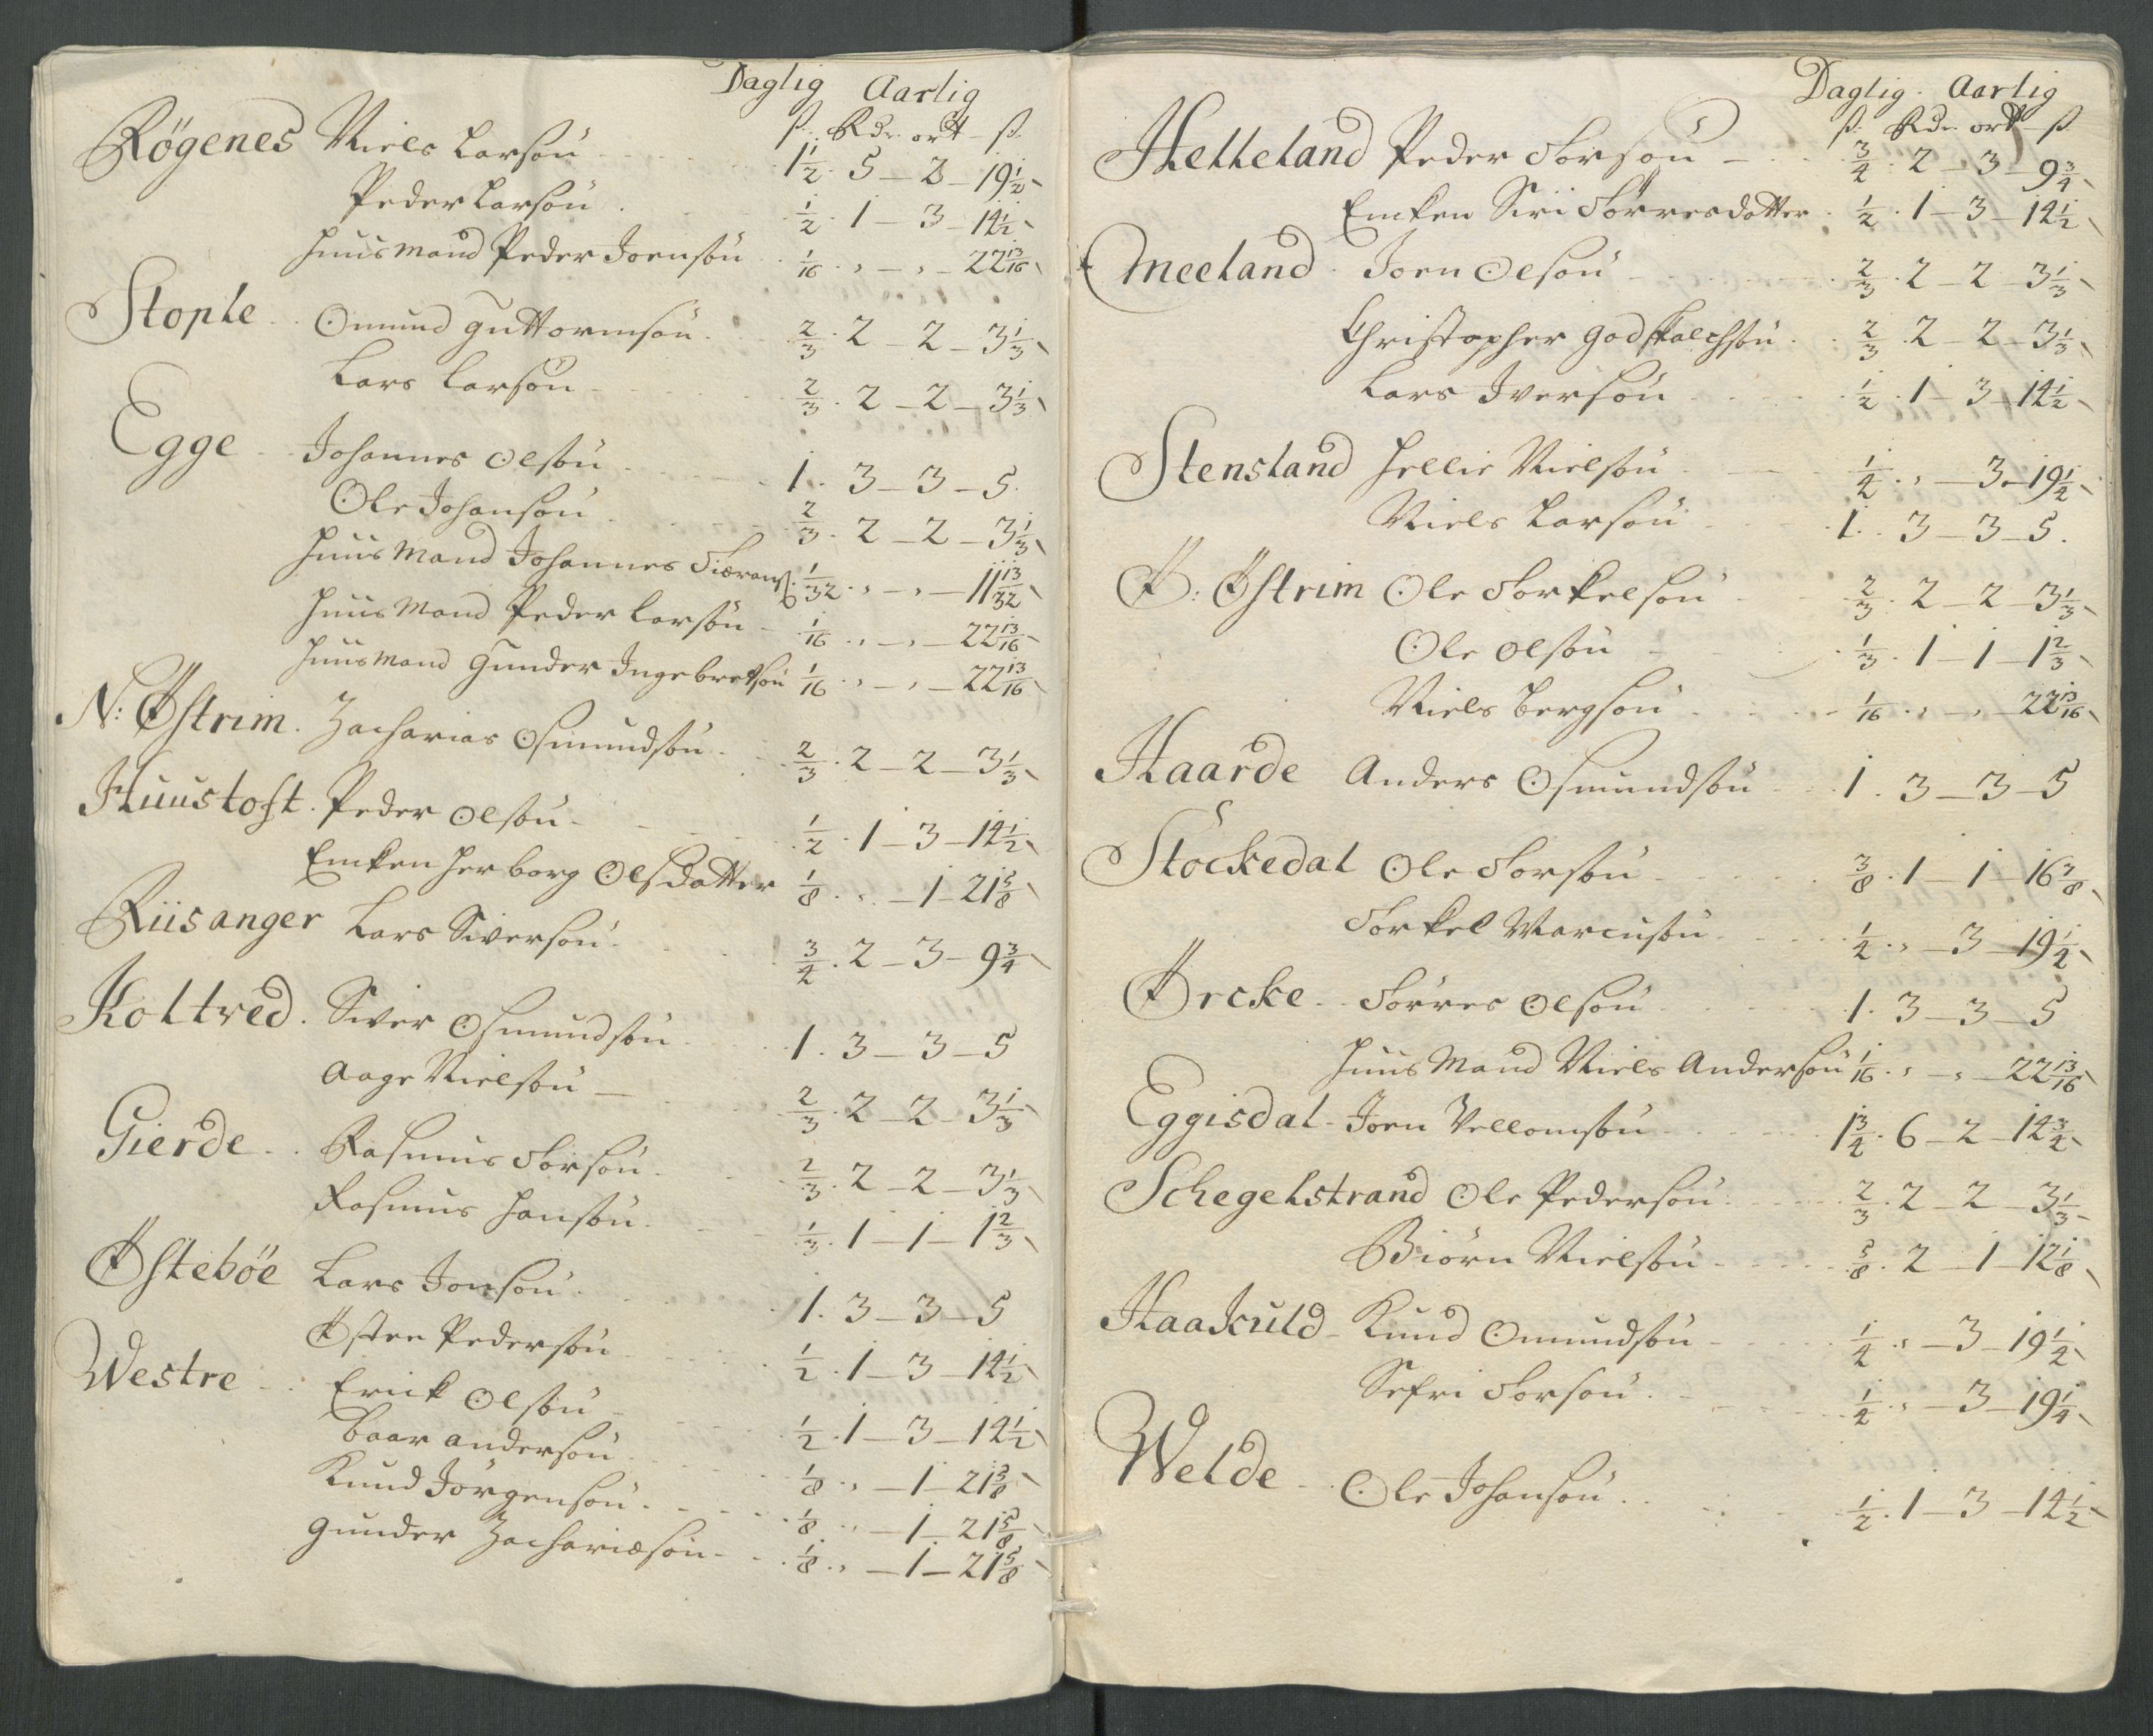 Daglig Aarlig
ß. Rdr. ort ß.
Røgenes Niels Larsøn 1½. 5 – 2 – 19½
Peder Larsøn ½. 1 – 3 – 14½
Huusmand Peder Joensøn 1/16. „ – „ – 22 13/16
Stople Omund Guttormsøn 2/3. 2 – 2 – 3 1/3
Lars Larsøn 2/3. 2 – 2 – 3 1/3
Egge Johannes Olsøn 1. 3 – 3 – 5
Ole Johansøn 2/3. 2 – 2 – 3 1/3
Huusmand Johannes 1/32. „ – „ – 11 13/32
Huusmand Peder Larsøn 1/16. „ – „ – 22 13/16
Huusmand Gunder Ingebretsøn 1/16. „ – „ – 22 13/16
N: Østrim. Zacharias Osmundsøn 2/3. 2 – 2 – 3 1/3
Huustoft. Peder Olsøn ½. 1 – 3 – 14½
Encken Herborg Olsdatter 1/8. „ – 1 – 21 5/8
Riisanger Lars Siversøn ¾. 2 – 3 – 9¾
Koltved. Siver Osmundsøn 1. 3 – 3 – 5
Aage Nielsøn 2/3. 2 – 2 – 3 1/3
Gierde Rasmus Torsøn 2/3. 2 – 2 – 3 1/3
Rasmus Hansøn 1/3. 1 – 1 – 1 2/3
Østebøe Lars Jonsøn 1. 3 – 3 – 5
Østen Pedersøn ½. 1 – 3 – 14½
Westre Erick Olsøn ½. 1 – 3 – 14½
Baar Andersøn 1/8. „ – 1 – 21 5/8
Knud Jørgensøn 1/8. „ – 1 – 21 5/8
Gunder Zachariæsøn 1/8. „ – 1 – 21 5/8
Daglig. Aarlig
ß. Rdr. ort ß
Helleland Peder Torsøn ¾. 2 – 3 – 9¾
Encken Siri Tørresdatter ½. 1 – 3 – 14½
Meeland Joen Olsøn 2/3. 2 – 2 – 3 1/3
Christopher Godskalchsøn 2/3. 2 – 2 – 3 1/3
Lars Iversøn ½. 1 – 3 – 14½
Stensland Hellie Nielsøn ¼. „ – 3 – 19¼
Niels Larsøn 1. 3 – 3 – 5.
Ø: Østrim Ole Torkelsøn 2/3. 2 – 2 – 3 1/3
Ole Olsøn 1/3. 1 – 1 – 1 2/3
Niels Bergsøn 1/16. „ – „ – 22 13/16
Haarde Anders Osmundsøn 1. 3 – 3 – 5
Støckedal Ole Torsøn 3/8. 1 – 1 – 16 7/8
Torkel Marcusøn ¼. „ – 3 – 19¼
Ørcke Tørres Olsøn 1. 3 – 3 – 5
Huusmand Niels Andersøn 1/16. „ – „ – 22 13/16
Eggisdal Joen Vellomsøn 1¾. 6 – 2 – 14¾
Schegelstrand Ole Pedersøn 2/3. 2 – 2 – 3 1/3
Biørn Nielsøn 5/8. 2 – 1 – 12 1/8
Haaskuld Knud Omundsøn ¼. „ – 3 – 19¼
Sefri Torsøn ¼. „ – 3 – 19¼
Welde Ole Johansøn ½. 1 – 3 – 14½